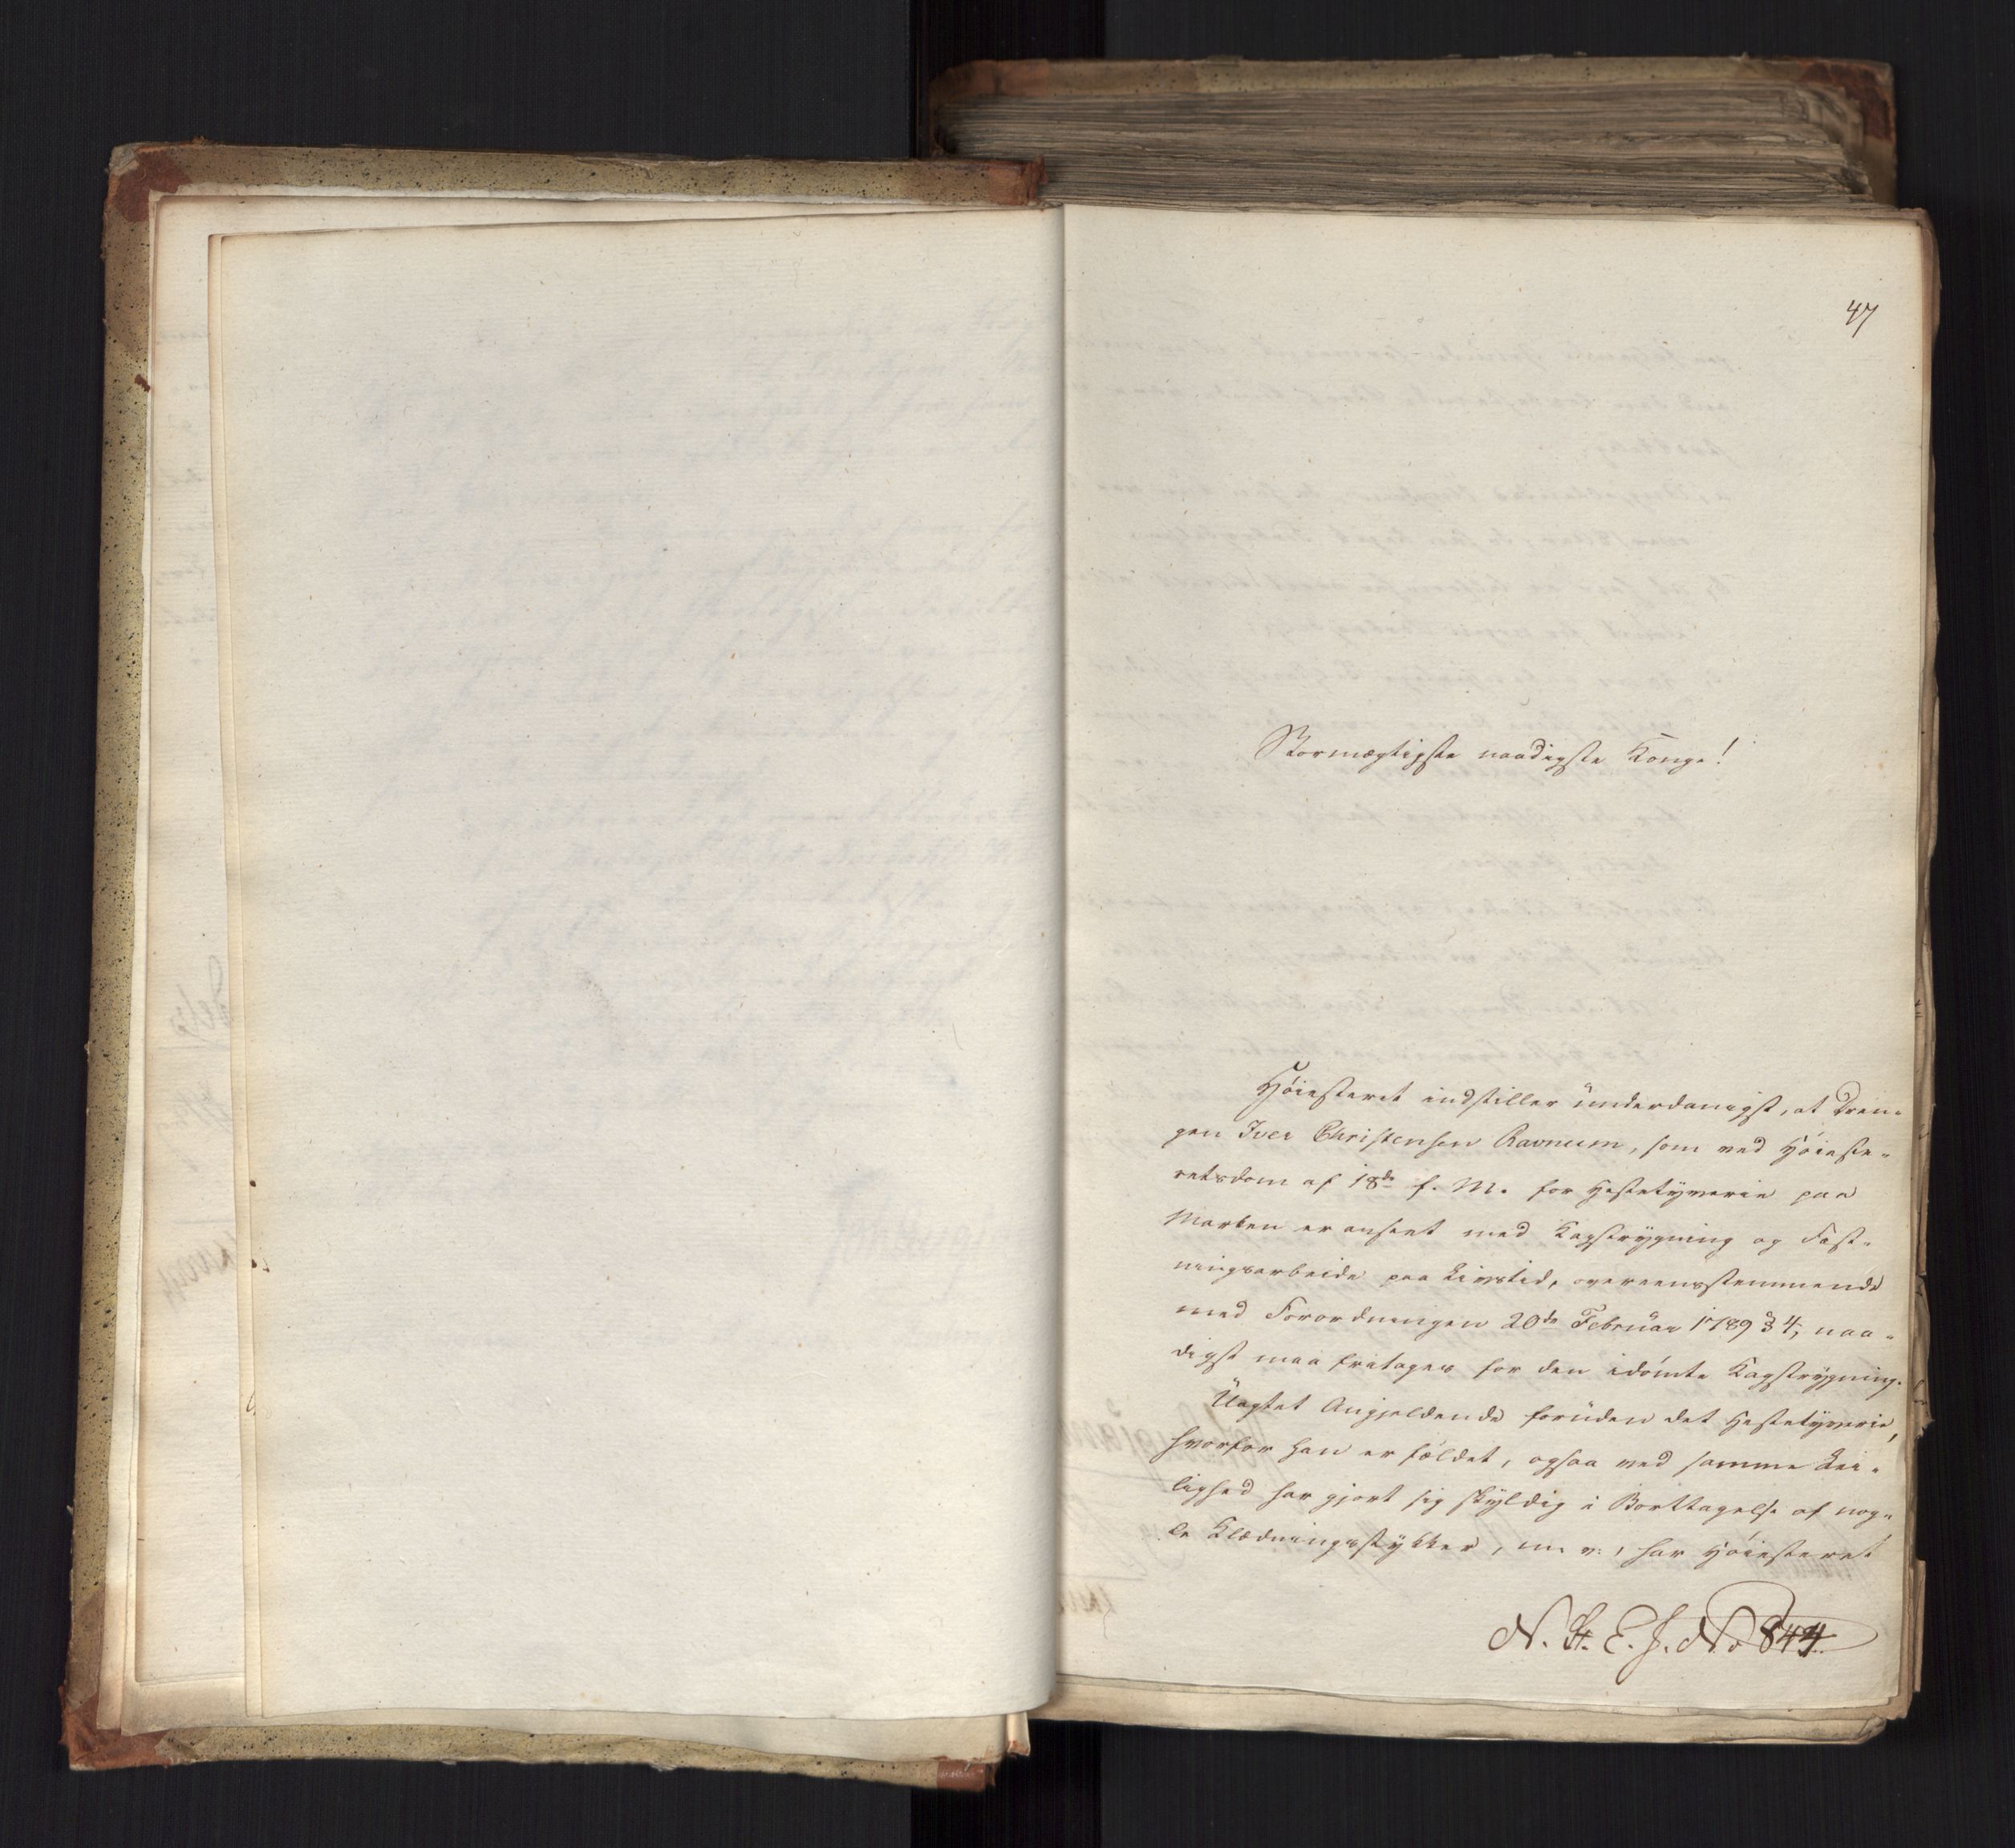 47
Stormægtigste naadigste Konge!
Höiesteret indstiller underdanigst, at Dren-
gen Iver Christensen Ravnum, som ved Höieste-
retsdom af 18de f. M. for Hestetyverie paa
Marken er anseet med Kagstrygning og Fæst-
ningsarbeide paa Livstid, overeensstemmende
med Forordningen 20de Februar 1789 § 4, naa-
digst maa fritages for den idömte Kagstrygning.
Uagtet Angjeldende foruden det Hestetyverie,
hvorfor han er fældet, ogsaa ved samme Lei-
lighed har gjort sig skyldig i Borttagelse af nog-
le Klædningsstykker, m. v., har Höiesteret
N. H. E. J. No 844